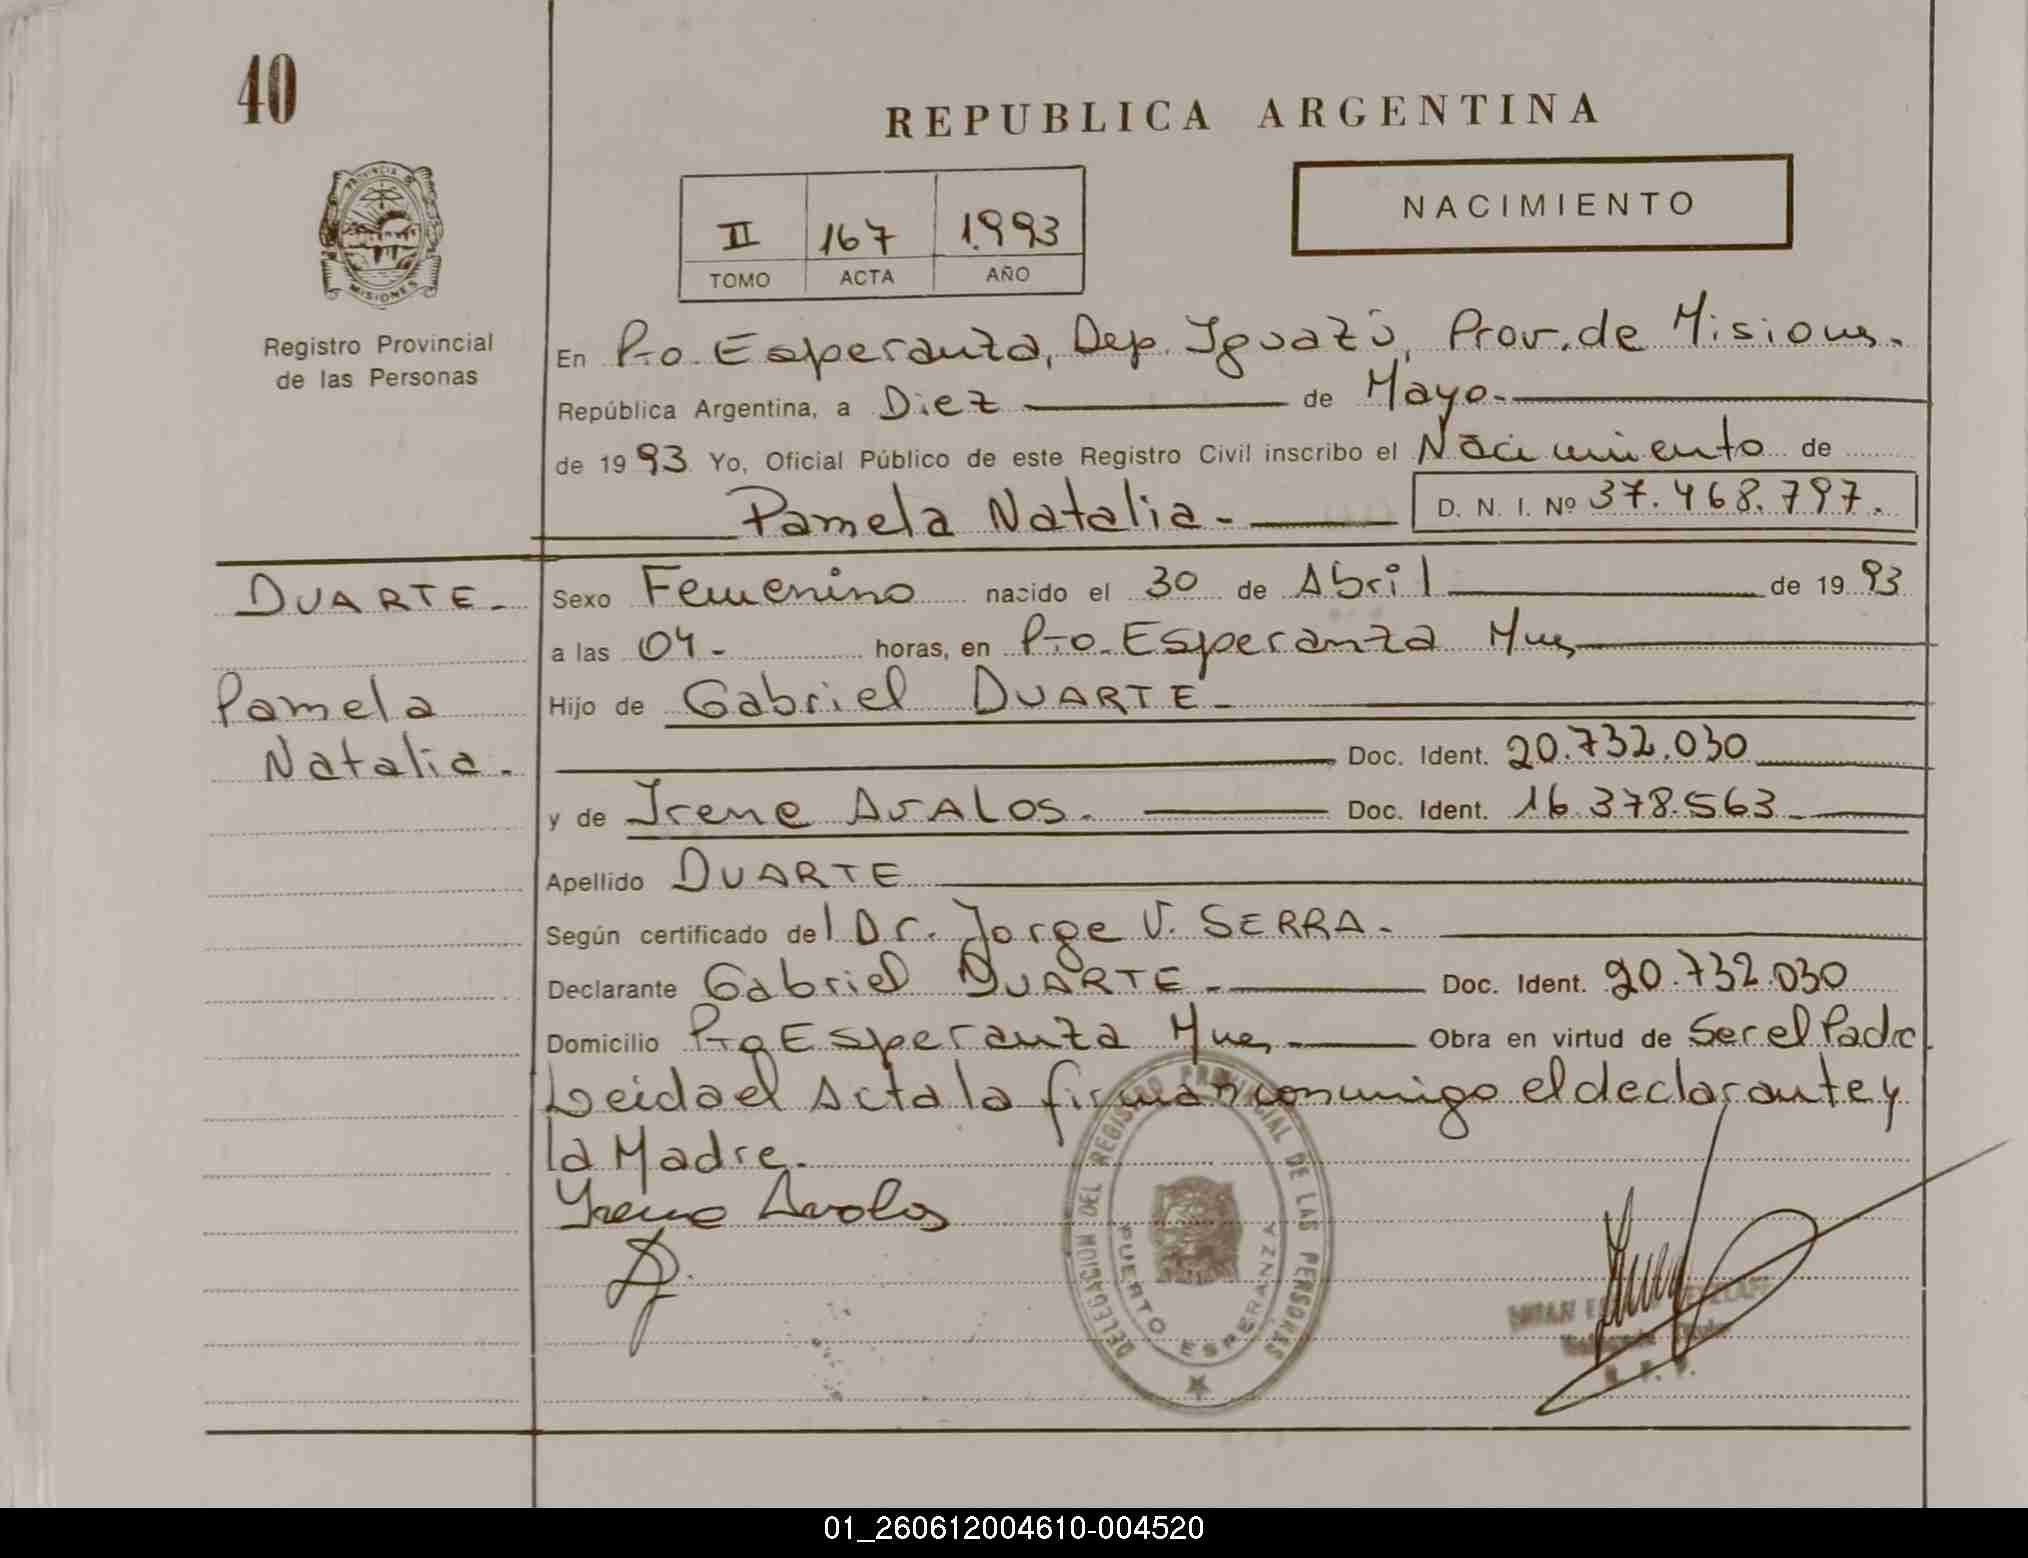 40
REPUBLICA ARGENTINA
PROVINCIA DE
MISIONES
Registro Provincial
de las Personas
NACIMIENTO
II 167 1.993
TOMO ACTA AÑO
En Pto. Esperanza, Dep. Iguazú, Prov. de Misiones.
República Argentina, a Diez de Mayo.
de 1993 Yo, Oficial Público de este Registro Civil inscribo el Nacimiento de
Pamela Natalia.
D. N. I. Nº 37.468.797.
DUARTE.
Pamela
Natalia.
Sexo Femenino nacido el 30 de Abril de 1993
a las 04. horas, en Pto. Esperanza Mnes
Hijo de Gabriel DUARTE.
Doc. Ident. 20.732.030
y de Irene AVALOS. Doc. Ident. 16.378.563
Apellido DUARTE
Según certificado del Dr. Jorge V. SERRA.
Declarante Gabriel DUARTE. Doc. Ident. 20.732.030
Domicilio Pto Esperanza Mnes. Obra en virtud de Ser el Padre.
Leida el Acta la firman conmigo el declarante y
la Madre.
Irene Avalos
DELEGACION DEL REGISTRO PROVINCIAL DE LAS PERSONAS
PUERTO ESPERANZA
01_260612004610-004520